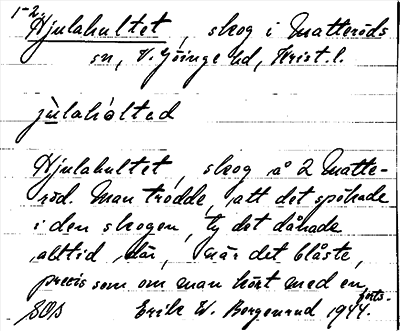 1-2.
Hjulahultet, skog i Matteröds
sn, V. Göinge hd, Krist. l.
jùlahò̀ltad
Hjulahultet, skog å 2 Matte-
röd. Man trodde, att det spökade
i den skogen, ty det dånade
alltid där, när det blåste,
precis som om man kört med en
forts.
SOS Erik W. Bergenrud 1944.